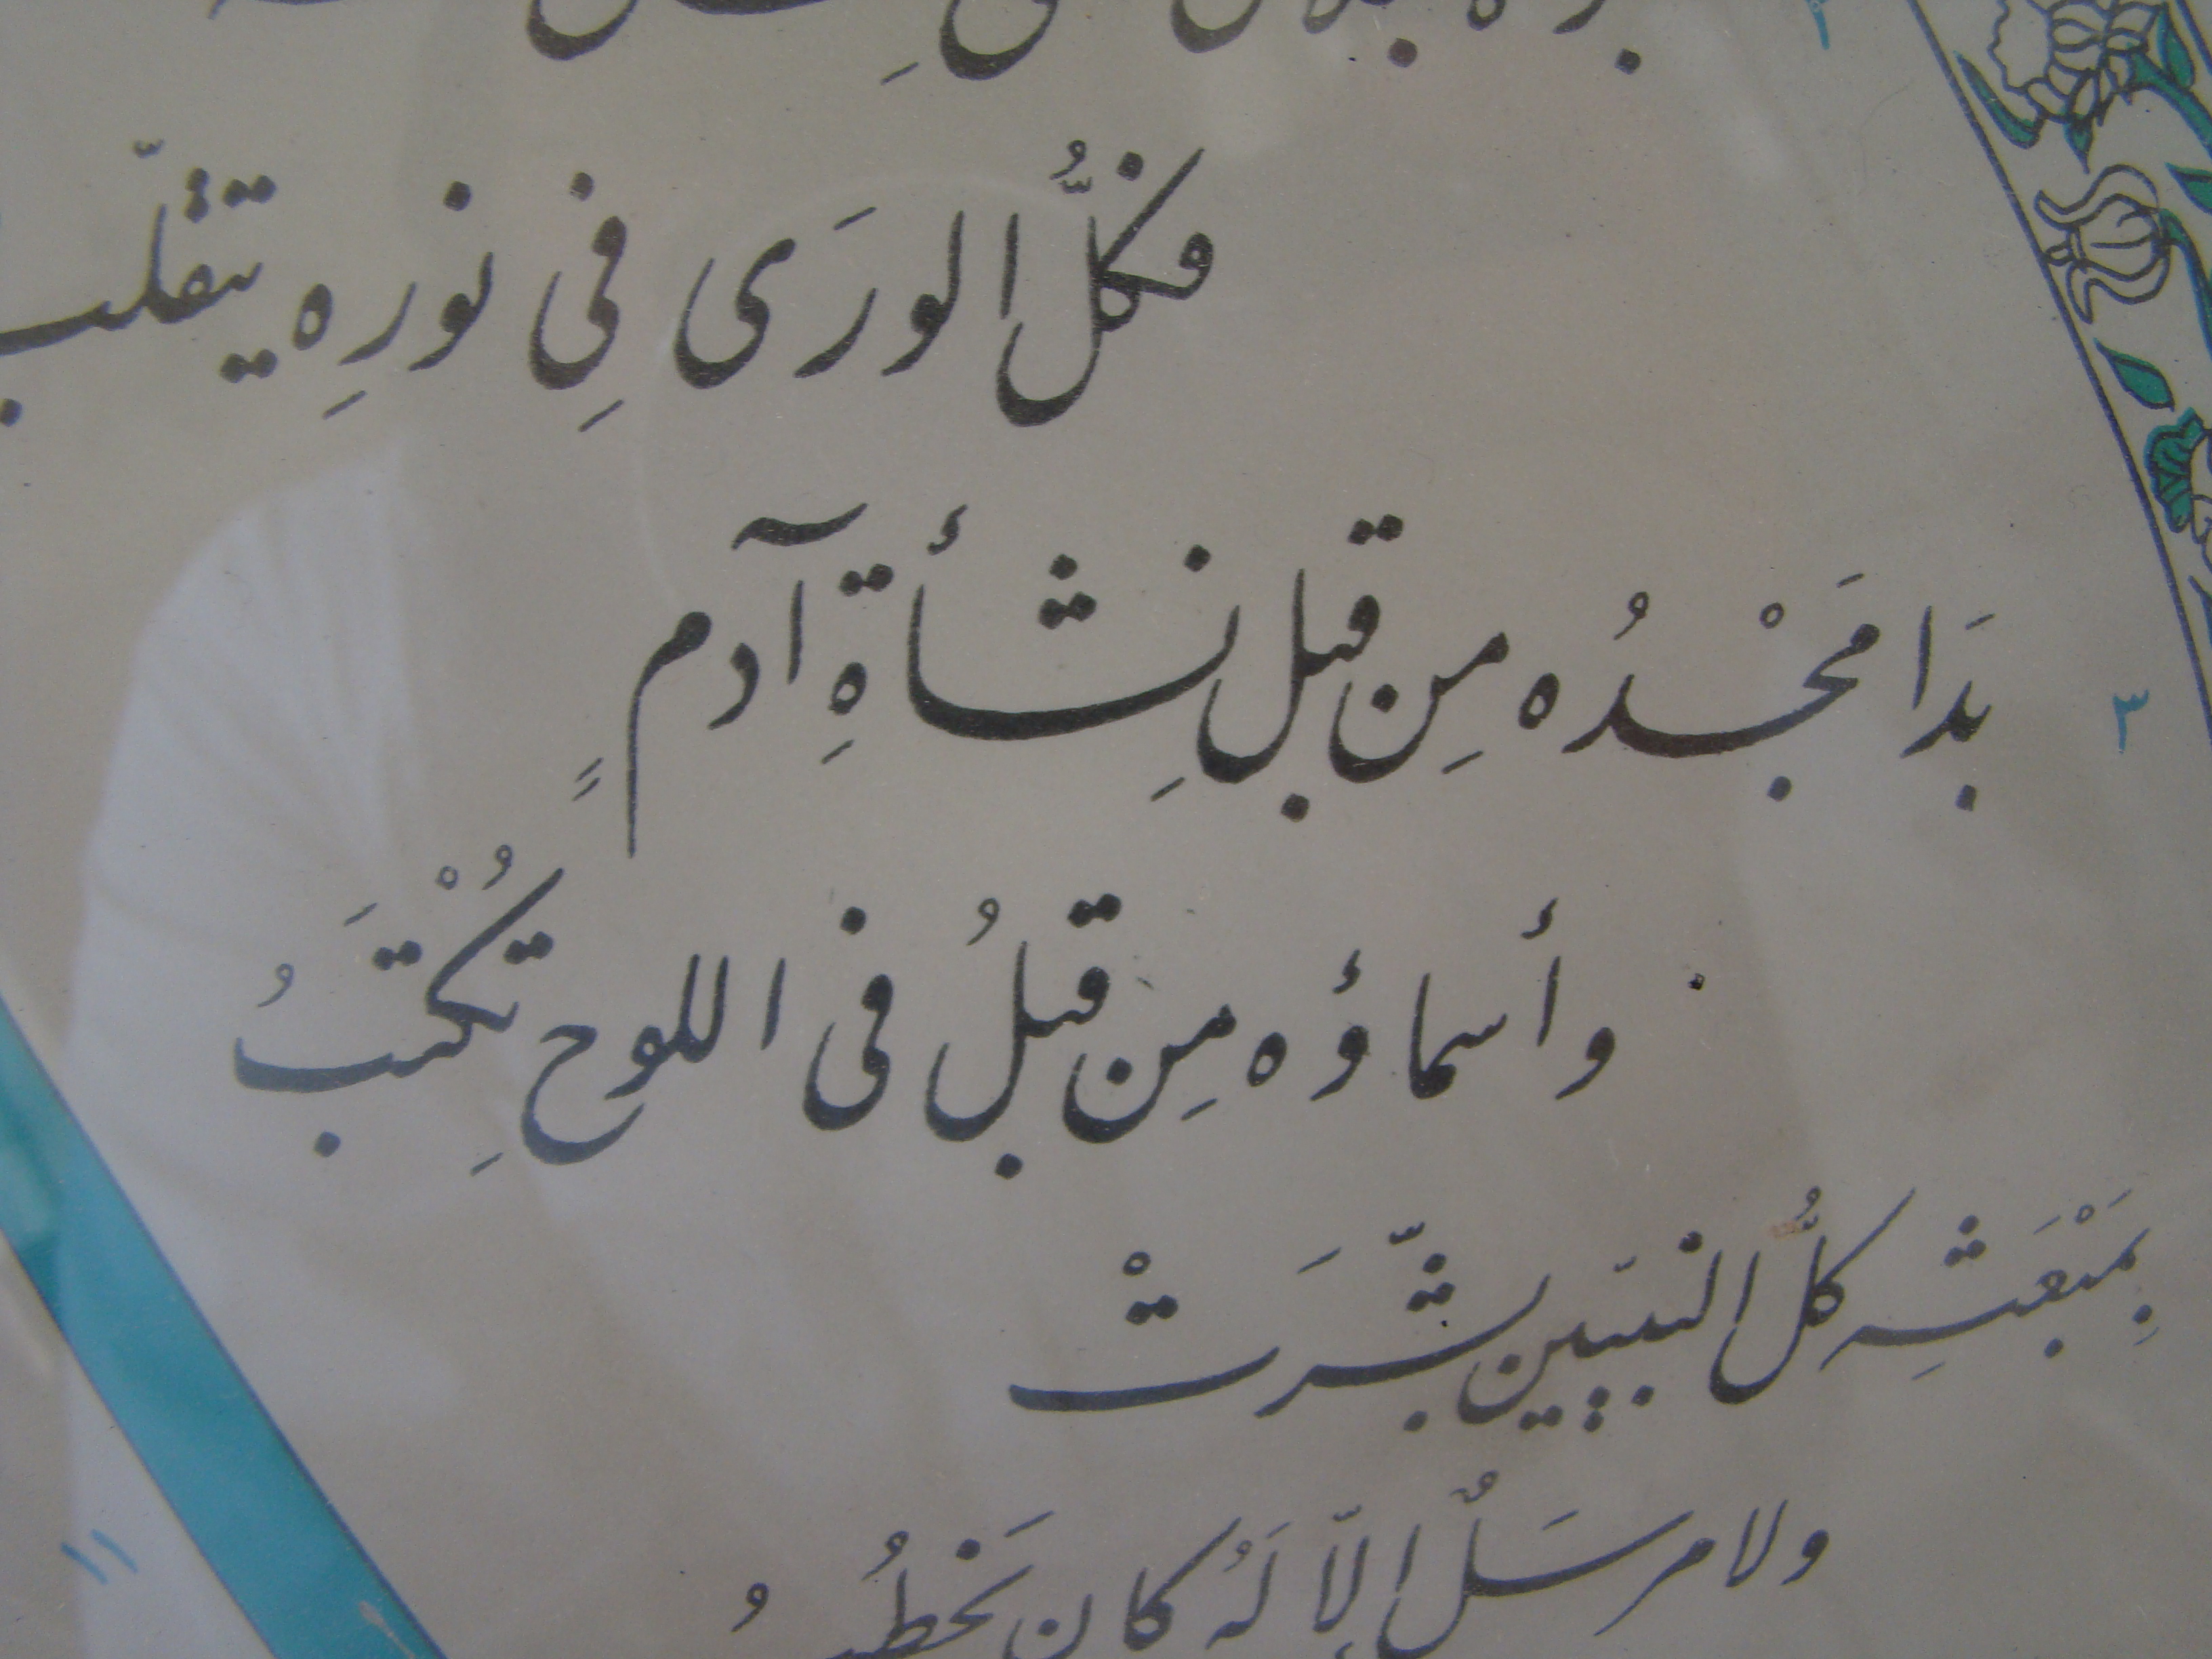 فكلُّ الورَى فِي نورِه يتقلّب
٣
بدَا مَجْدُه مِن قبلِ نشأةِ آدمٍ
وأسماؤه مِن قبلُ فى اللوحِ تُكْتَبُ
بِمَبْعَثِه كلُّ النبيّين بشّرَتْ
ولا مرسَلٌ إلّا لَهُ كان يَخْطُبُ